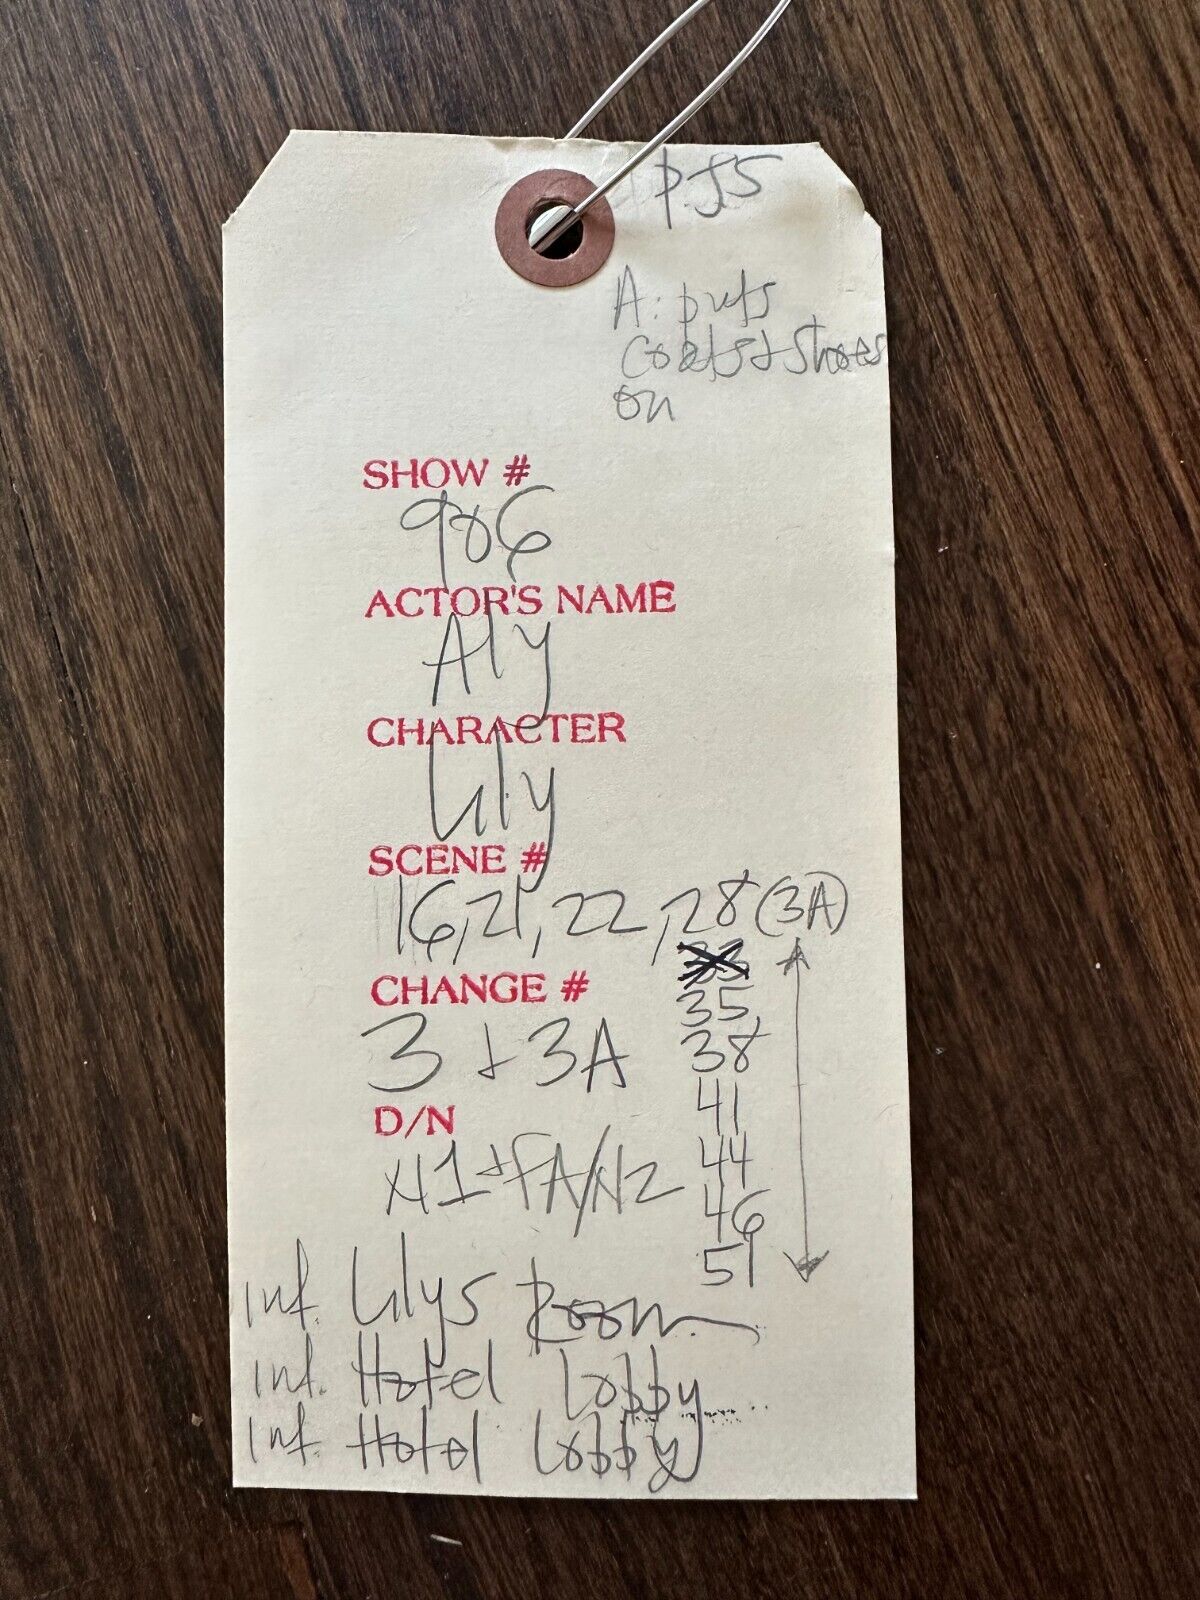 PJS
A: puts
coats & shoes
on
SHOW #
906
ACTOR'S NAME
Aly
CHARACTER
Lily
SCENE #
16, 21, 22, 28 (3A)
33
35
38
41
44
46
51
CHANGE #
3 + 3A
D/N
N1 + FA/N2
Int. Lilys Room
Int. Hotel Lobby
Int. Hotel Lobby